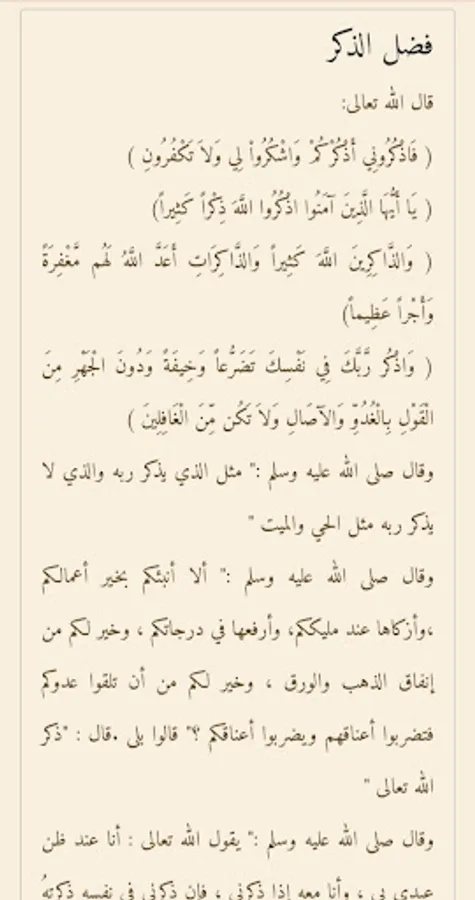 فضل الذكر
قال الله تعالى:
( فَاذْكُرُونِي أَذْكُرْكُمْ وَاشْكُرُواْ لِي وَلاَ تَكْفُرُونِ )
( يَا أَيُّهَا الَّذِينَ آمَنُوا اذْكُرُوا اللَّهَ ذِكْراً كَثِيراً)
( وَالذَّاكِرِينَ اللَّهَ كَثِيراً وَالذَّاكِرَاتِ أَعَدَّ اللَّهُ لَهُم مَّغْفِرَةً
وَأَجْراً عَظِيماً)
( وَاذْكُر رَّبَّكَ فِي نَفْسِكَ تَضَرُّعاً وَخِيفَةً وَدُونَ الْجَهْرِ مِنَ
الْقَوْلِ بِالْغُدُوِّ وَالآصَالِ وَلاَ تَكُن مِّنَ الْغَافِلِينَ )
وقال صلى الله عليه وسلم :" مثل الذي يذكر ربه والذي لا
يذكر ربه مثل الحي والميت "
وقال صلى الله عليه وسلم :" ألا أنبئكم بخير أعمالكم
،وأزكاها عند مليككم، وأرفعها في درجاتكم ، وخير لكم من
إنفاق الذهب والورق ، وخير لكم من أن تلقوا عدوكم
فتضربوا أعناقهم ويضربوا أعناقكم ؟" قالوا بلى .قال : "ذكر
الله تعالى "
وقال صلى الله عليه وسلم :" يقول الله تعالى : أنا عند ظن
عبدي بي ، وأنا معه إذا ذكرني ، فإن ذكرني في نفسه ذكرتهُ